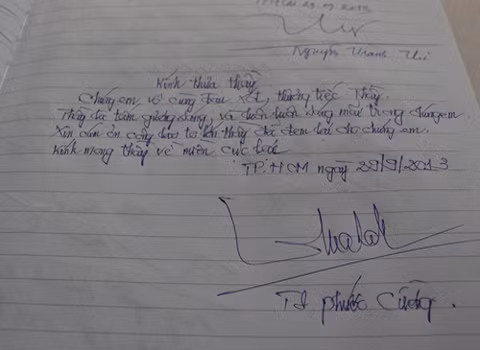 Nguyễn Thanh
Kính thưa thầy
Chúng em vô cùng đau xót, thương tiếc Thầy.
Thầy là tấm gương sáng, và luôn luôn sống mãi trong chúng em.
Xin cám ơn công lao to lớn thầy đã đem lại cho chúng em.
Kính mong thầy về miền cực lạc
TP.HCM ngày 29/9/2013
Phước Cường.